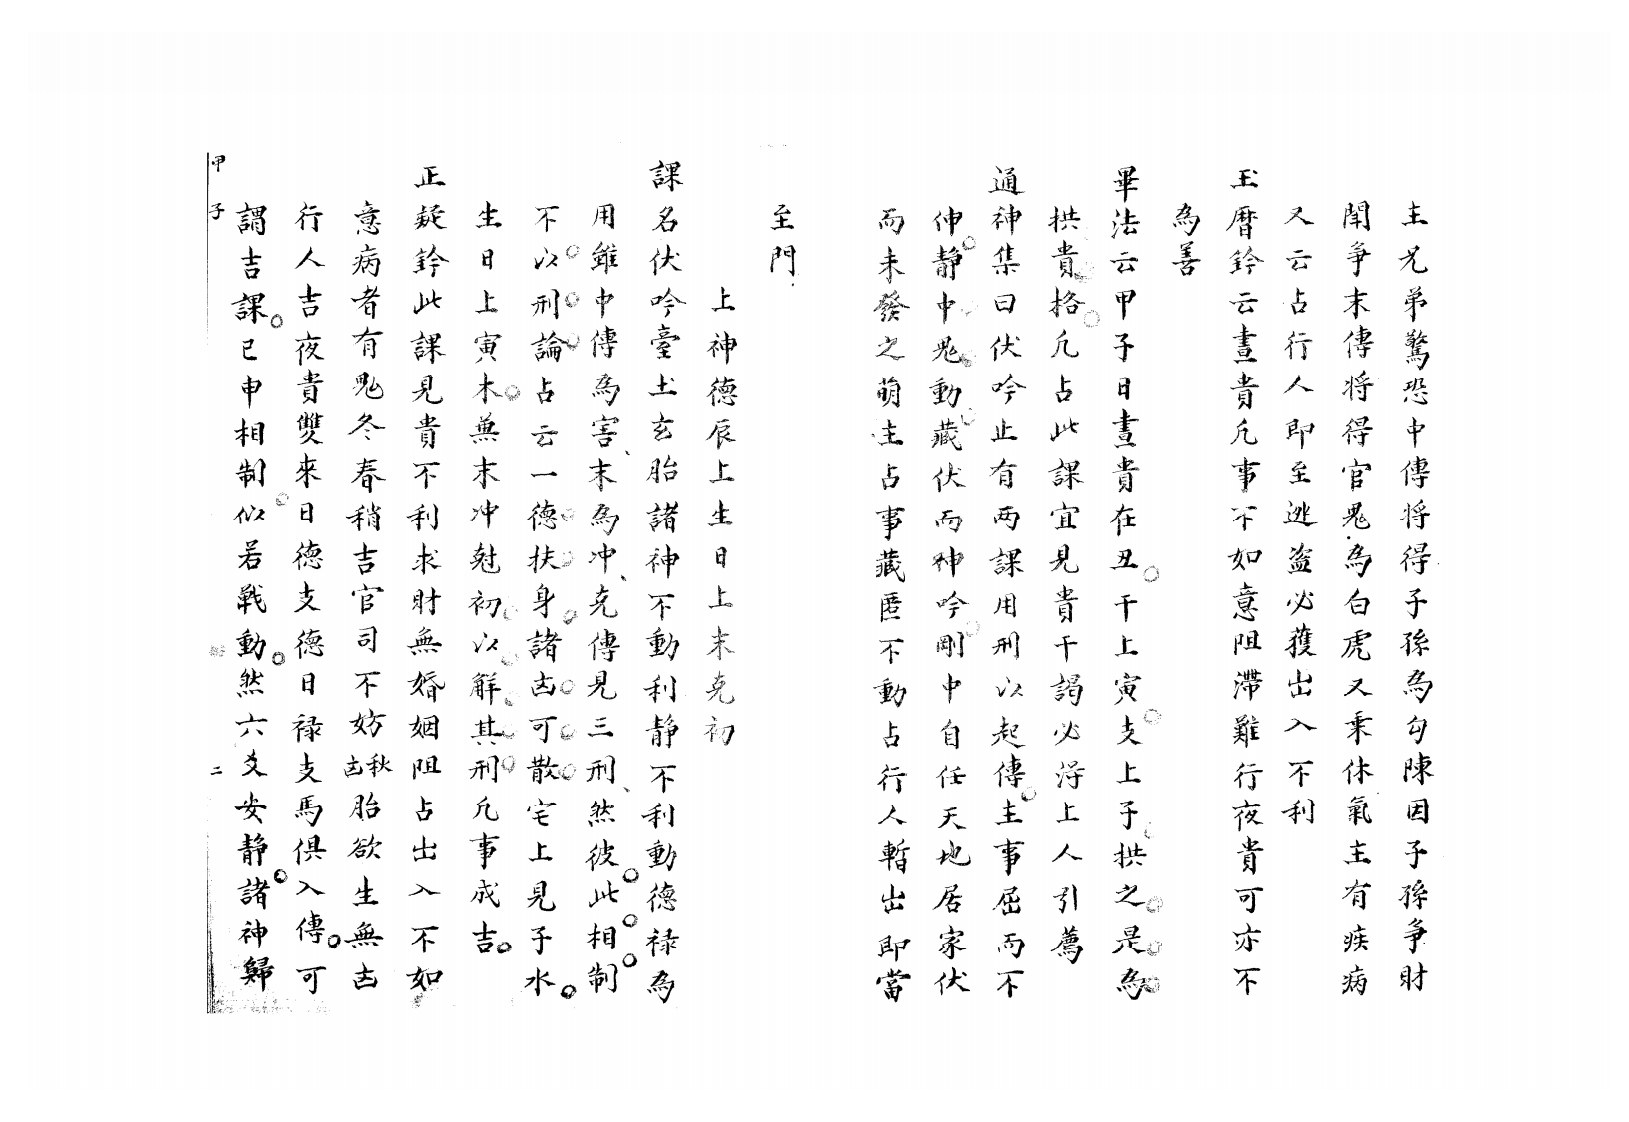 主兄弟驚恐中傳将得子孫為勾陳因子孫爭財
閗爭末傳将得官鬼為白虎又乘休氣主有疾病
又云占行人即至逃盗必獲出入不利
玉曆鈐云晝貴凡事不如意阻滯難行夜貴可亦不
為善
畢法云甲子日晝貴在丑干上寅支上子拱之是為
拱貴格凡占此課宜見貴干謁必淂上人引薦
通神集曰伏吟止有兩課用刑以起傳主事屈而不
伸靜中鬼動藏伏而神吟剛中自任天地居家伏
而未發之萌主占事藏匿不動占行人暫出即當
至門
上神德辰上生日上末克初
課名伏吟臺土玄胎諸神不動利靜不利動德禄為
用雖中傳為害末為冲克傳見三刑然彼此相制
不以刑論占云一德扶身諸凶可散宅上見子水
生日上寅木無末冲尅初以觧其刑凡事成吉
正疑鈐此課見貴不利求財無婚姻阻占出入不如
意病者有鬼冬春稍吉官司不妨秋凶胎欲生無凶
行人吉夜貴雙來日德支德日禄支馬俱入傳可
謂吉課已申相制似若戰動然六爻安静諸神歸
甲子
二